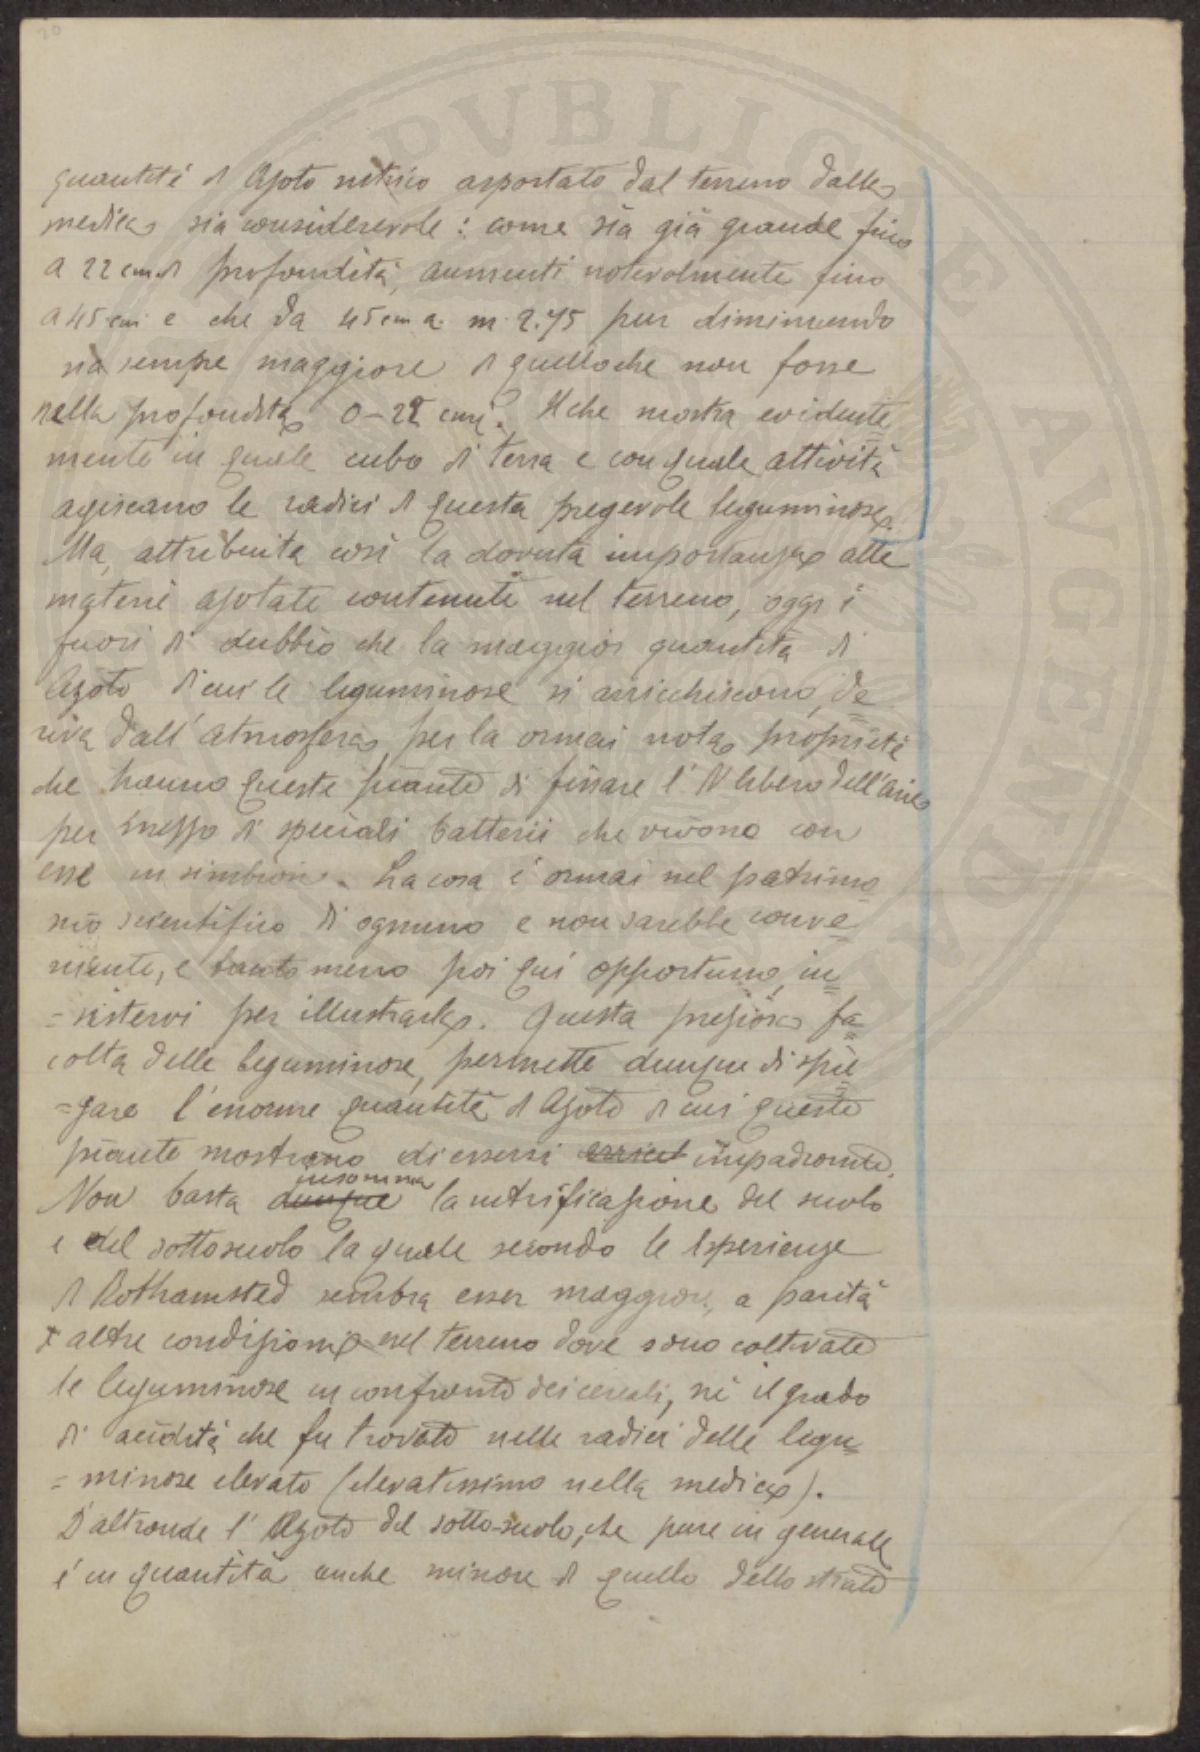 20
quantità di Azoto nitrico asportato dal terreno dalla
medica sia considerevole: come sia già grande fino
a 22 cm di profondità, aumenti notevolmente fino
a 45 cm e che da 45 cm a m. 2.75 pur diminuendo
sia sempre maggiore di quello che non fosse
nella profondità 0-22 cm. Il che mostra evidente
mente in quale cubo di terra e con quale attività
agiscano le radici di questa pregevole leguminosa.
Ma, attribuita così la dovuta importanza alle
materie azotate contenute nel terreno, oggi è
fuori di dubbio che la maggior quantità di
Azoto di cui le leguminose si arricchiscono, de
riva dall'atmosfera, per la ormai nota proprietà
che hanno queste piante di fissare l'N libero dell'aria
per mezzo di speciali batterii che vivono con
esse in simbiosi. La cosa è ormai nel patrimo
nio scientifico di ognuno e non sarebbe conve=
niente, e tanto meno poi qui opportuno, in=
=sistervi per illustrarla. Questa preziosa fa=
coltà delle leguminose, permette dunque di spie=
=gare l'enorme quantità di Azoto di cui queste
piante mostrano di essersi impadronite.
insomma
Non basta dunque la nitrificazione del suolo
e del sottosuolo la quale secondo le esperienze
di Rothamsted sembra esser maggiore, a parità
altre condizioni, nel terreno dove sono coltivate
le leguminose in confronto dei cereali, nè il grado
di acidità che fu trovato nelle radici delle legu=
=minose elevato (elevatissimo nella medica).
D'altronde l'Azoto del sotto-suolo, che pure in generale
è in quantità anche minore di quello dello strato
PVBLICAE AVGENDAE